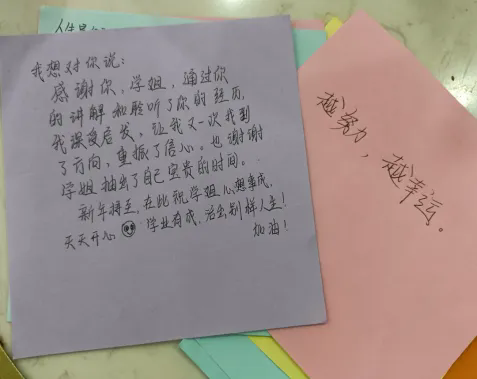 我想对你说:
感谢你,学姐,通过你
的讲解和聆听了你的经历,
我深受启发,让我又一次找到
了方向,重振了信心。也谢谢
学姐抽出了自己宝贵的时间。
新年将至,在此祝学姐心想事成,
天天开心 学业有成,活出别样人生!
加油!
越努力,越幸运。